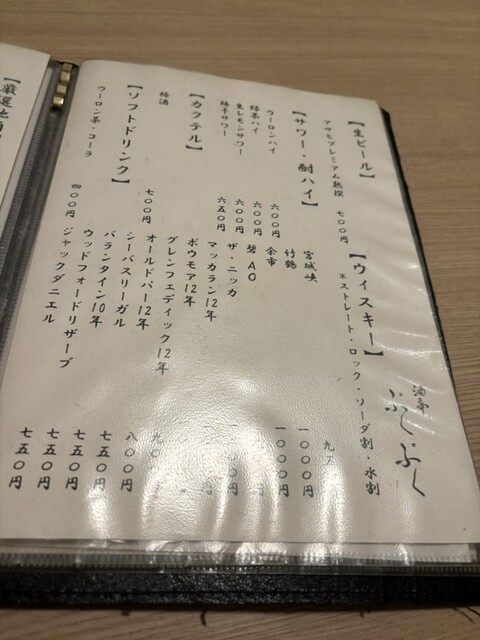 酒亭
ぷくぷく
【生ビール】
アサヒプレミアム熟撰 七〇〇円
【サワー・酎ハイ】
ウーロンハイ 六〇〇円
緑茶ハイ 六〇〇円
生レモンサワー 六〇〇円
梅干サワー 六五〇円
【カクテル】
梅酒 七〇〇円
【ソフトドリンク】
ウーロン茶・コーラ 四〇〇円
【ウィスキー】
※ストレート・ロック・ソーダ割・水割
宮城峡
竹鶴 一〇〇〇円
余市 一〇〇〇円
碧AO
ザ・ニッカ
マッカラン12年
ボウモア12年
グレンフェディック12年
オールドパー12年
シーバスリーガル 八〇〇円
バランタイン10年 七五〇円
ウッドフォードリザーブ 七五〇円
ジャックダニエル 七五〇円
七五〇円
【厳選